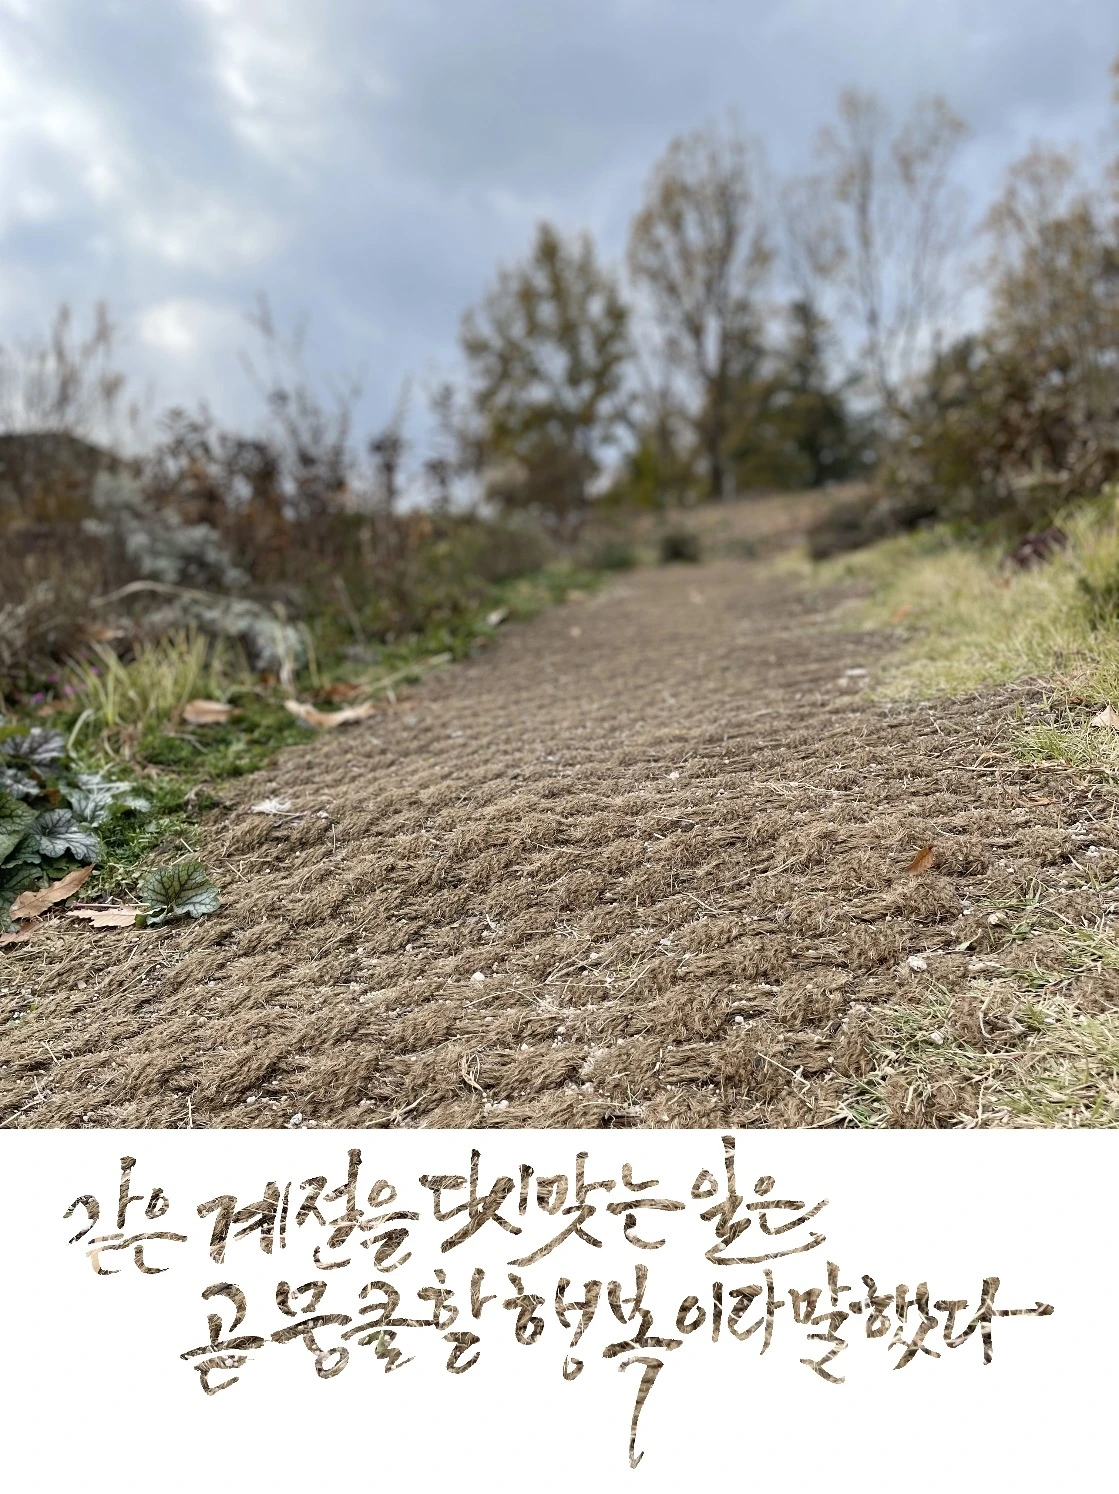 같은 계절을 다시 맞는 일은
곧 뭉클할 행복이라 말했다